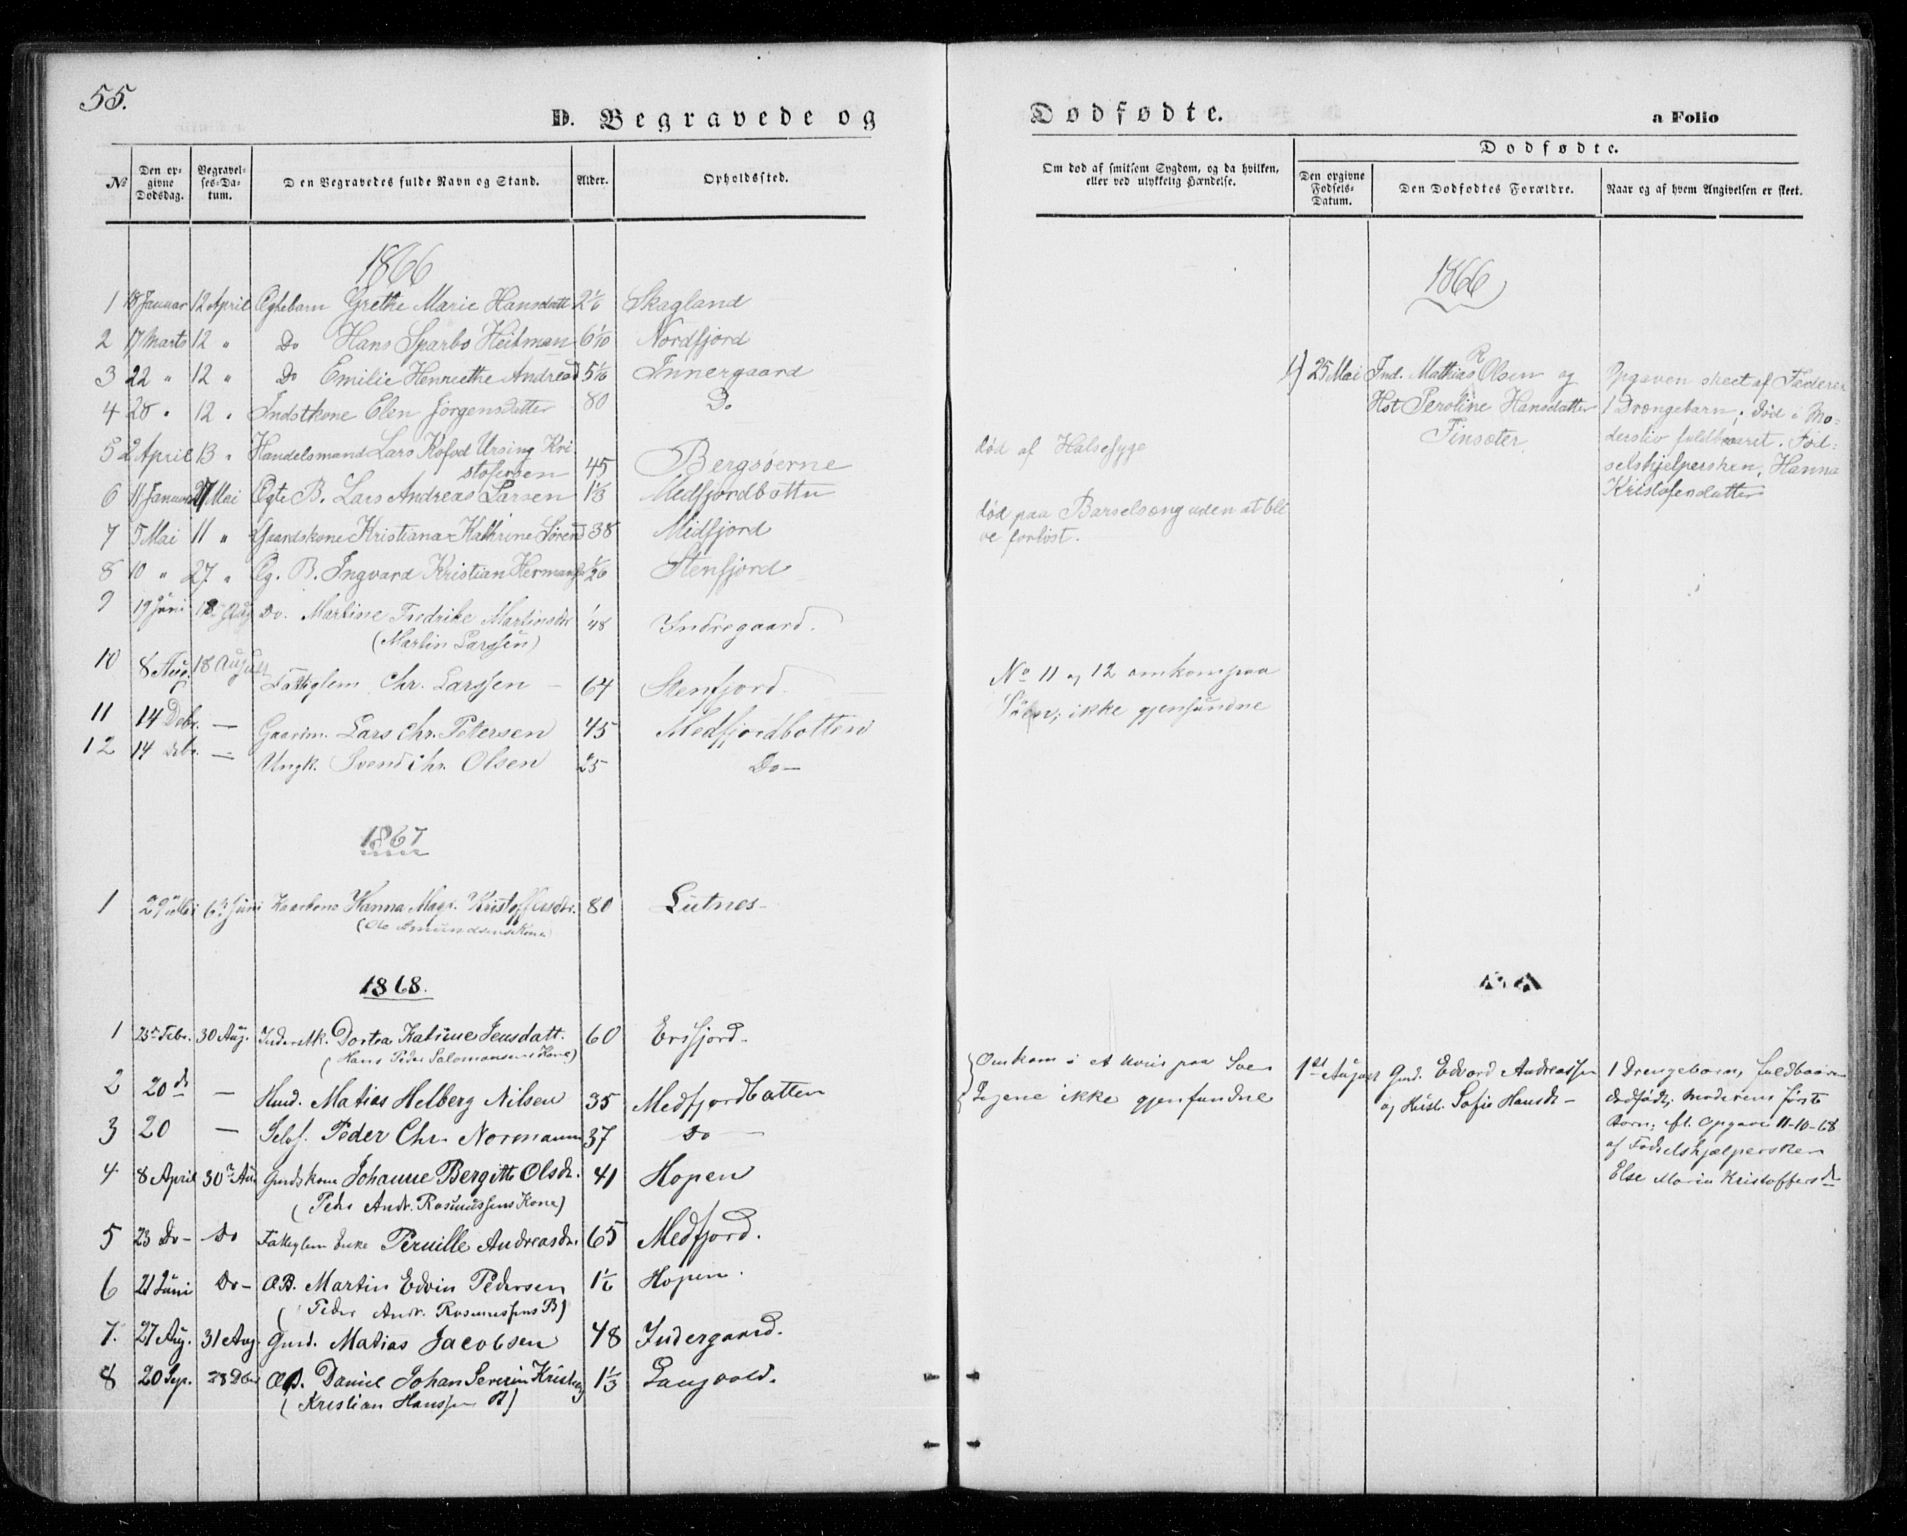 55.
D. Begravede og
Dødfødte.
a Folio
№
Den opgivne Dødsdag.
Begravelses-Datum.
Den Begravedes fulde Navn og Stand.
Alder.
Opholdssted.
Om død af smitsom Sygdom, og da hvilken, eller ved ulykkelig Hændelse.
Dødfødte.
Den opgivne Fødsels-Datum.
Den Dødfødtes Forældre.
Naar og af hvem Angivelsen er skeet.
1866
1 18 Januar 12 April Ægtebarn Grethe Marie Hansdatt 2 1/6 Skagland
2 17 Marts 12 " Do Hans Sparbo Heitman 6 1/10 Nordfjord
3 22 " 12 " Do Emilie Henriethe Andreasd 5 1/6 Innergaard
4 28 " 12 " Indstkone Elen Jørgensdatter 80 Do
5 2 April 13 " Handelsmand Lars Kofod Ursing Kri
stofersen 45 Bergsøerne
6 11 Januar 27 Mai Ægte B. Lars Andreas Larsen 1 1/3 Medfjordbotten
7 5 Mai 11 " Gaardskone Kristiana Kathrine Sørend 38 Midfjord
8 10 " 27 " Æg. B. Ingvard Kristian Hermans 1/26 Stenfjord
9 19 Juni 18 Aug Do. Martine Fredrike Martinsdr 1/48 Indregaard.
(Martin Larssen)
10 8 Aug. 18 August Fattiglem Chr. Larssen 64 Stenfjord.
11 14 Debr. — Gaarm. Lars Chr. Petersen 45 Medfjordbotten
12 14 Debr. — Ungk. Svend Chr. Olsen 25 Do —
1867
1 29 Juli 6 Juni Kaarkone Hanna Magr. Kristoffersdr. 80 Lutnes
(Ole Amundsens Kone)
1868.
1 23 Febr. 30 Aug. Inderstk. Dortea Katrine Jensdatt. 60 Ersfjord.
(Hans Peder Salomonsens Kone)
2 20 do — Husd. Matias Helberg Nilsen 35 Medfjordbotten
3 20 — Selvf. Peder Chr. Normann 37 Do —
4 8 April 30 Aug Gmdskone Johanne Bergitte Olsdr. 41 Hopen
(Peder Andr. Rasmussens Kone)
5 23 Do — Do Fattiglem Enke Pernille Andreasdr. 65 Medfjord.
6 21 Juni Do — ÆB. Martin Edvin Pedersen 1 1/6 Hopen.
(Peder Andr. Rasmussens B)
7. 27 Aug. 31 Aug. Gmd. Matias Jacobsen 48 Indergaard.
8 20 Sep. 28 Dbr ÆB. Daniel Johan Severin Kristians 1 1/3 Langvold.
(Kristian Hanssen B)
død af Halsesyge
død paa Barselseng uden at bli
ve forløst.
No 11 og 12 omkom paa
Søen; ikke gjenfundne
Omkom i et Uveir paa Søen
Ligene ikke gjenfundne
1866
1) 25 Mai Ind. Mathias R Olsen og
Hst Peroline Hansdatter
Finsæter
Opgaven skeet af Faderen
1 Drængebarn; død i Mo-
dersliv fuldbaaret. Fød-
selshjelpersken, Hanna
Kristofersdatter
1st August Gmd. Edvard Andreassen
og Hust. Sofie Hansdr —
1 Drengebarn, fuldbaaren
dødfødt; Moderens første
Barn; fl. Opgave 11-10-68
af Fødselshjælpersken
Else Marie Kristoffersdr